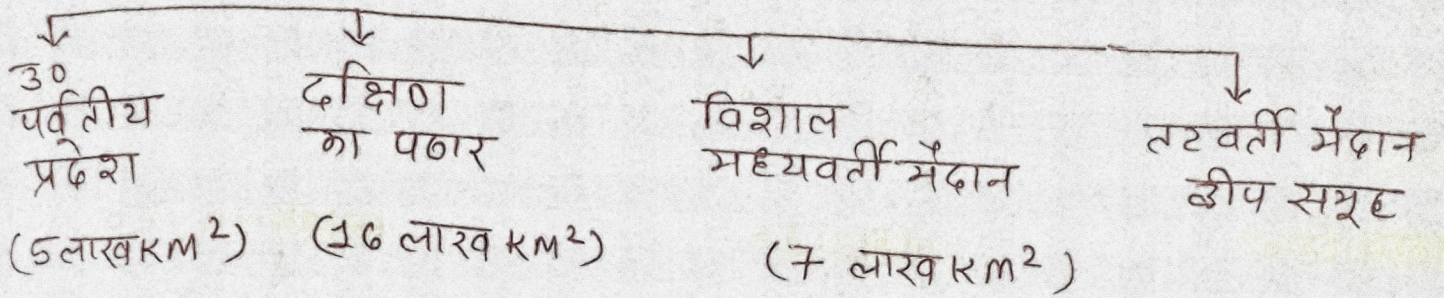 उ०
पर्वतीय
प्रदेश
(5 लाख KM²)
दक्षिण
का पठार
(16 लाख KM²)
विशाल
मध्यवर्ती मैदान
(7 लाख KM²)
तटवर्ती मैदान
द्वीप समूह